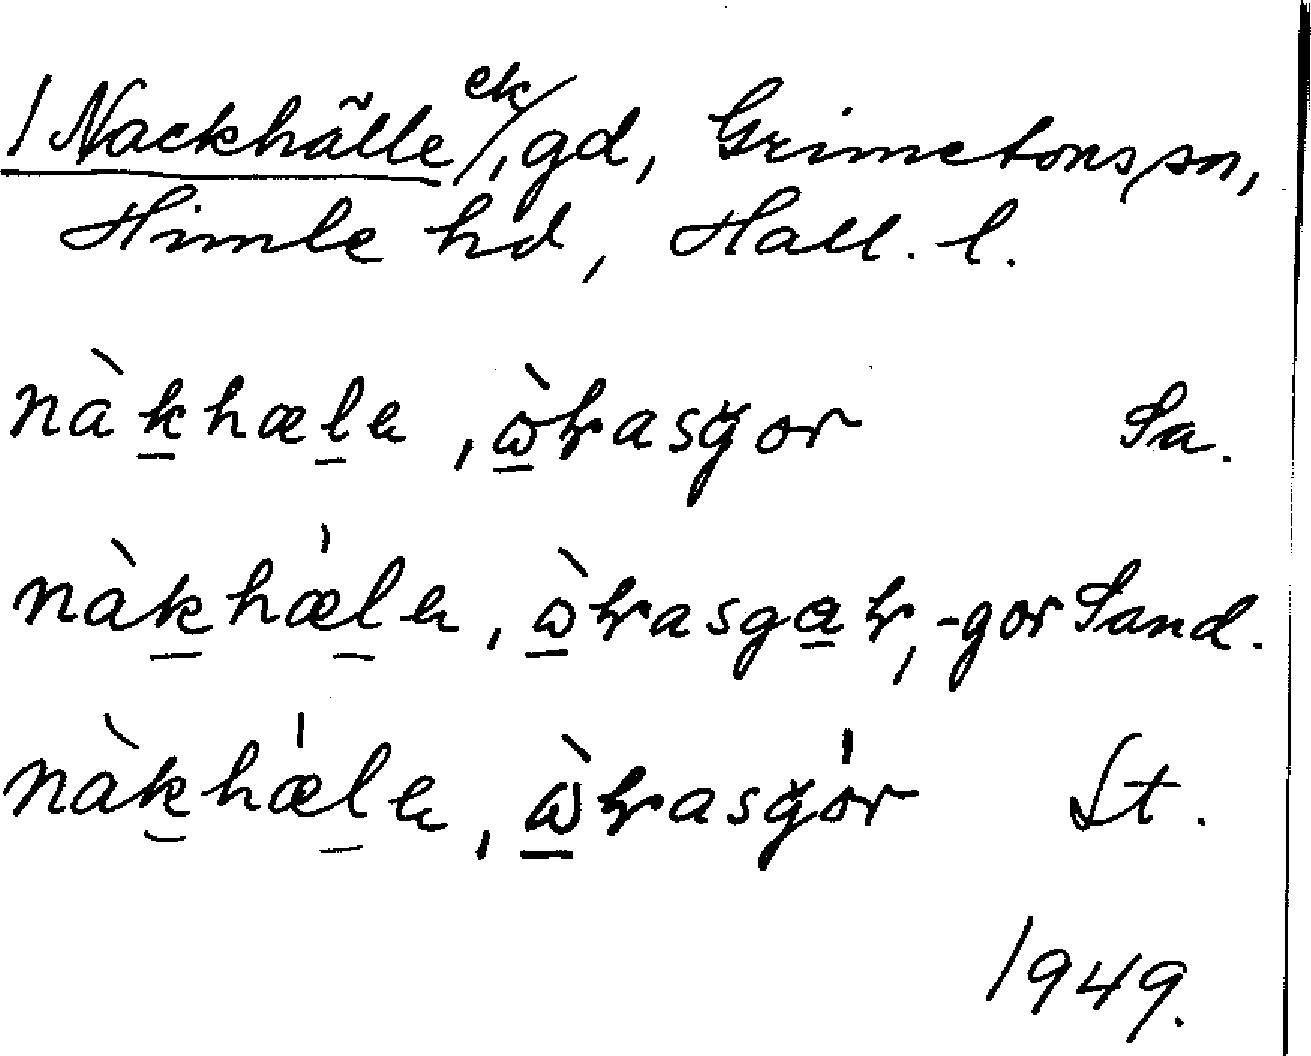 / Nackhälle ek/, gd, Grimetons sn,
Himle hd, Hall. l.
nàk̲hæl̲e, ὼ̲rasgor Sa.
nàk̲hæ̍l̲e, ὼ̲rasga̲r, -gor Sand.
nàk̲hæ̍l̲e, ὼ̲rasgo̍r St.
1949.